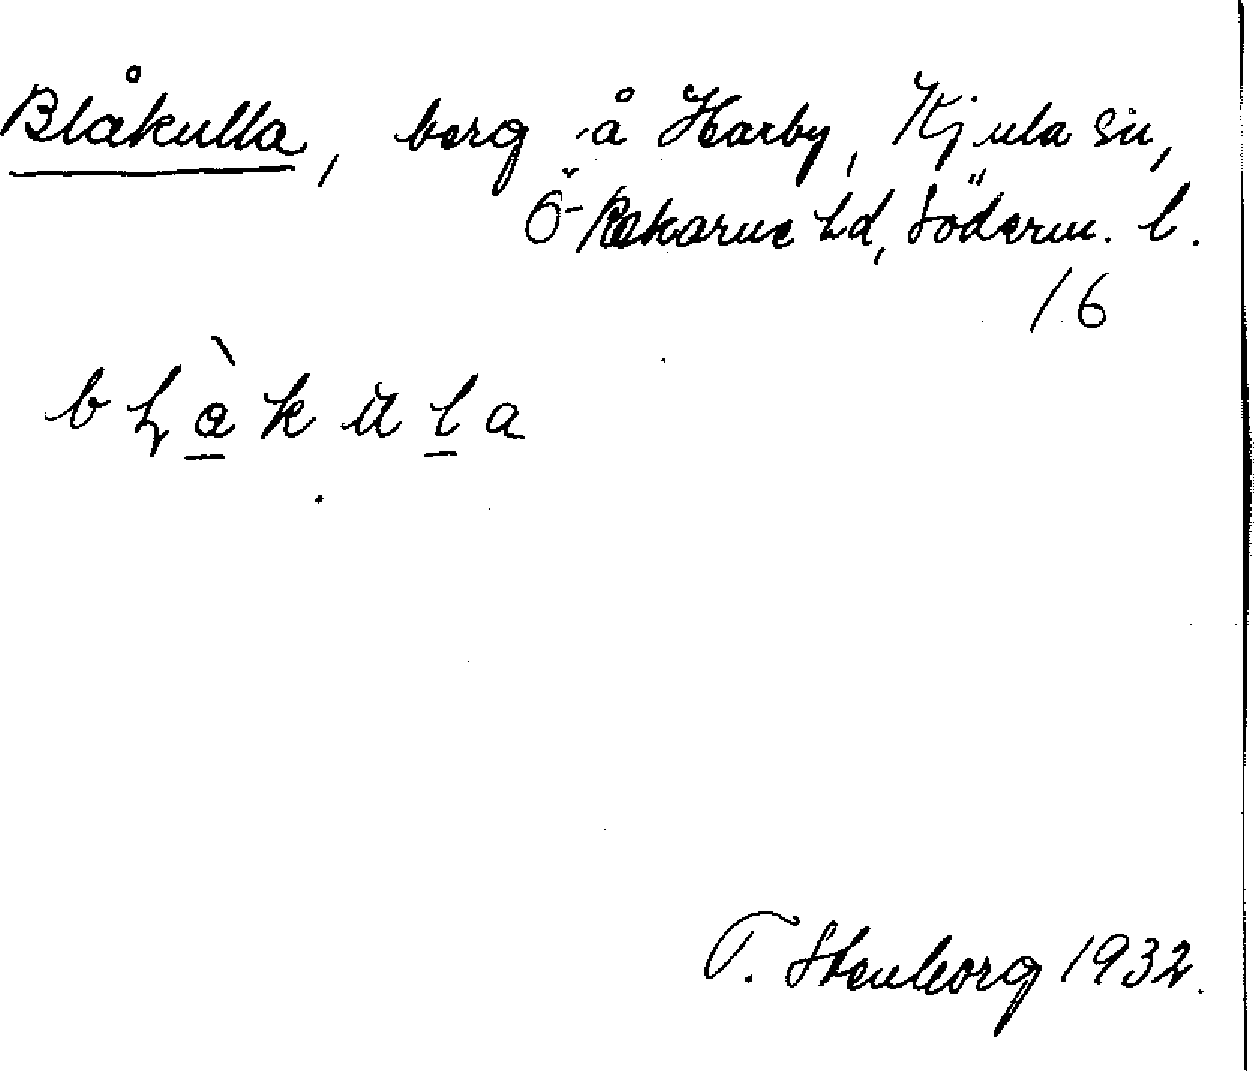 Blåkulla, berg å Harby, Kjula sn,
Ö-Rekarne hd, Söderm. l.
16
bḷàkula
T. Stenborg 1932.